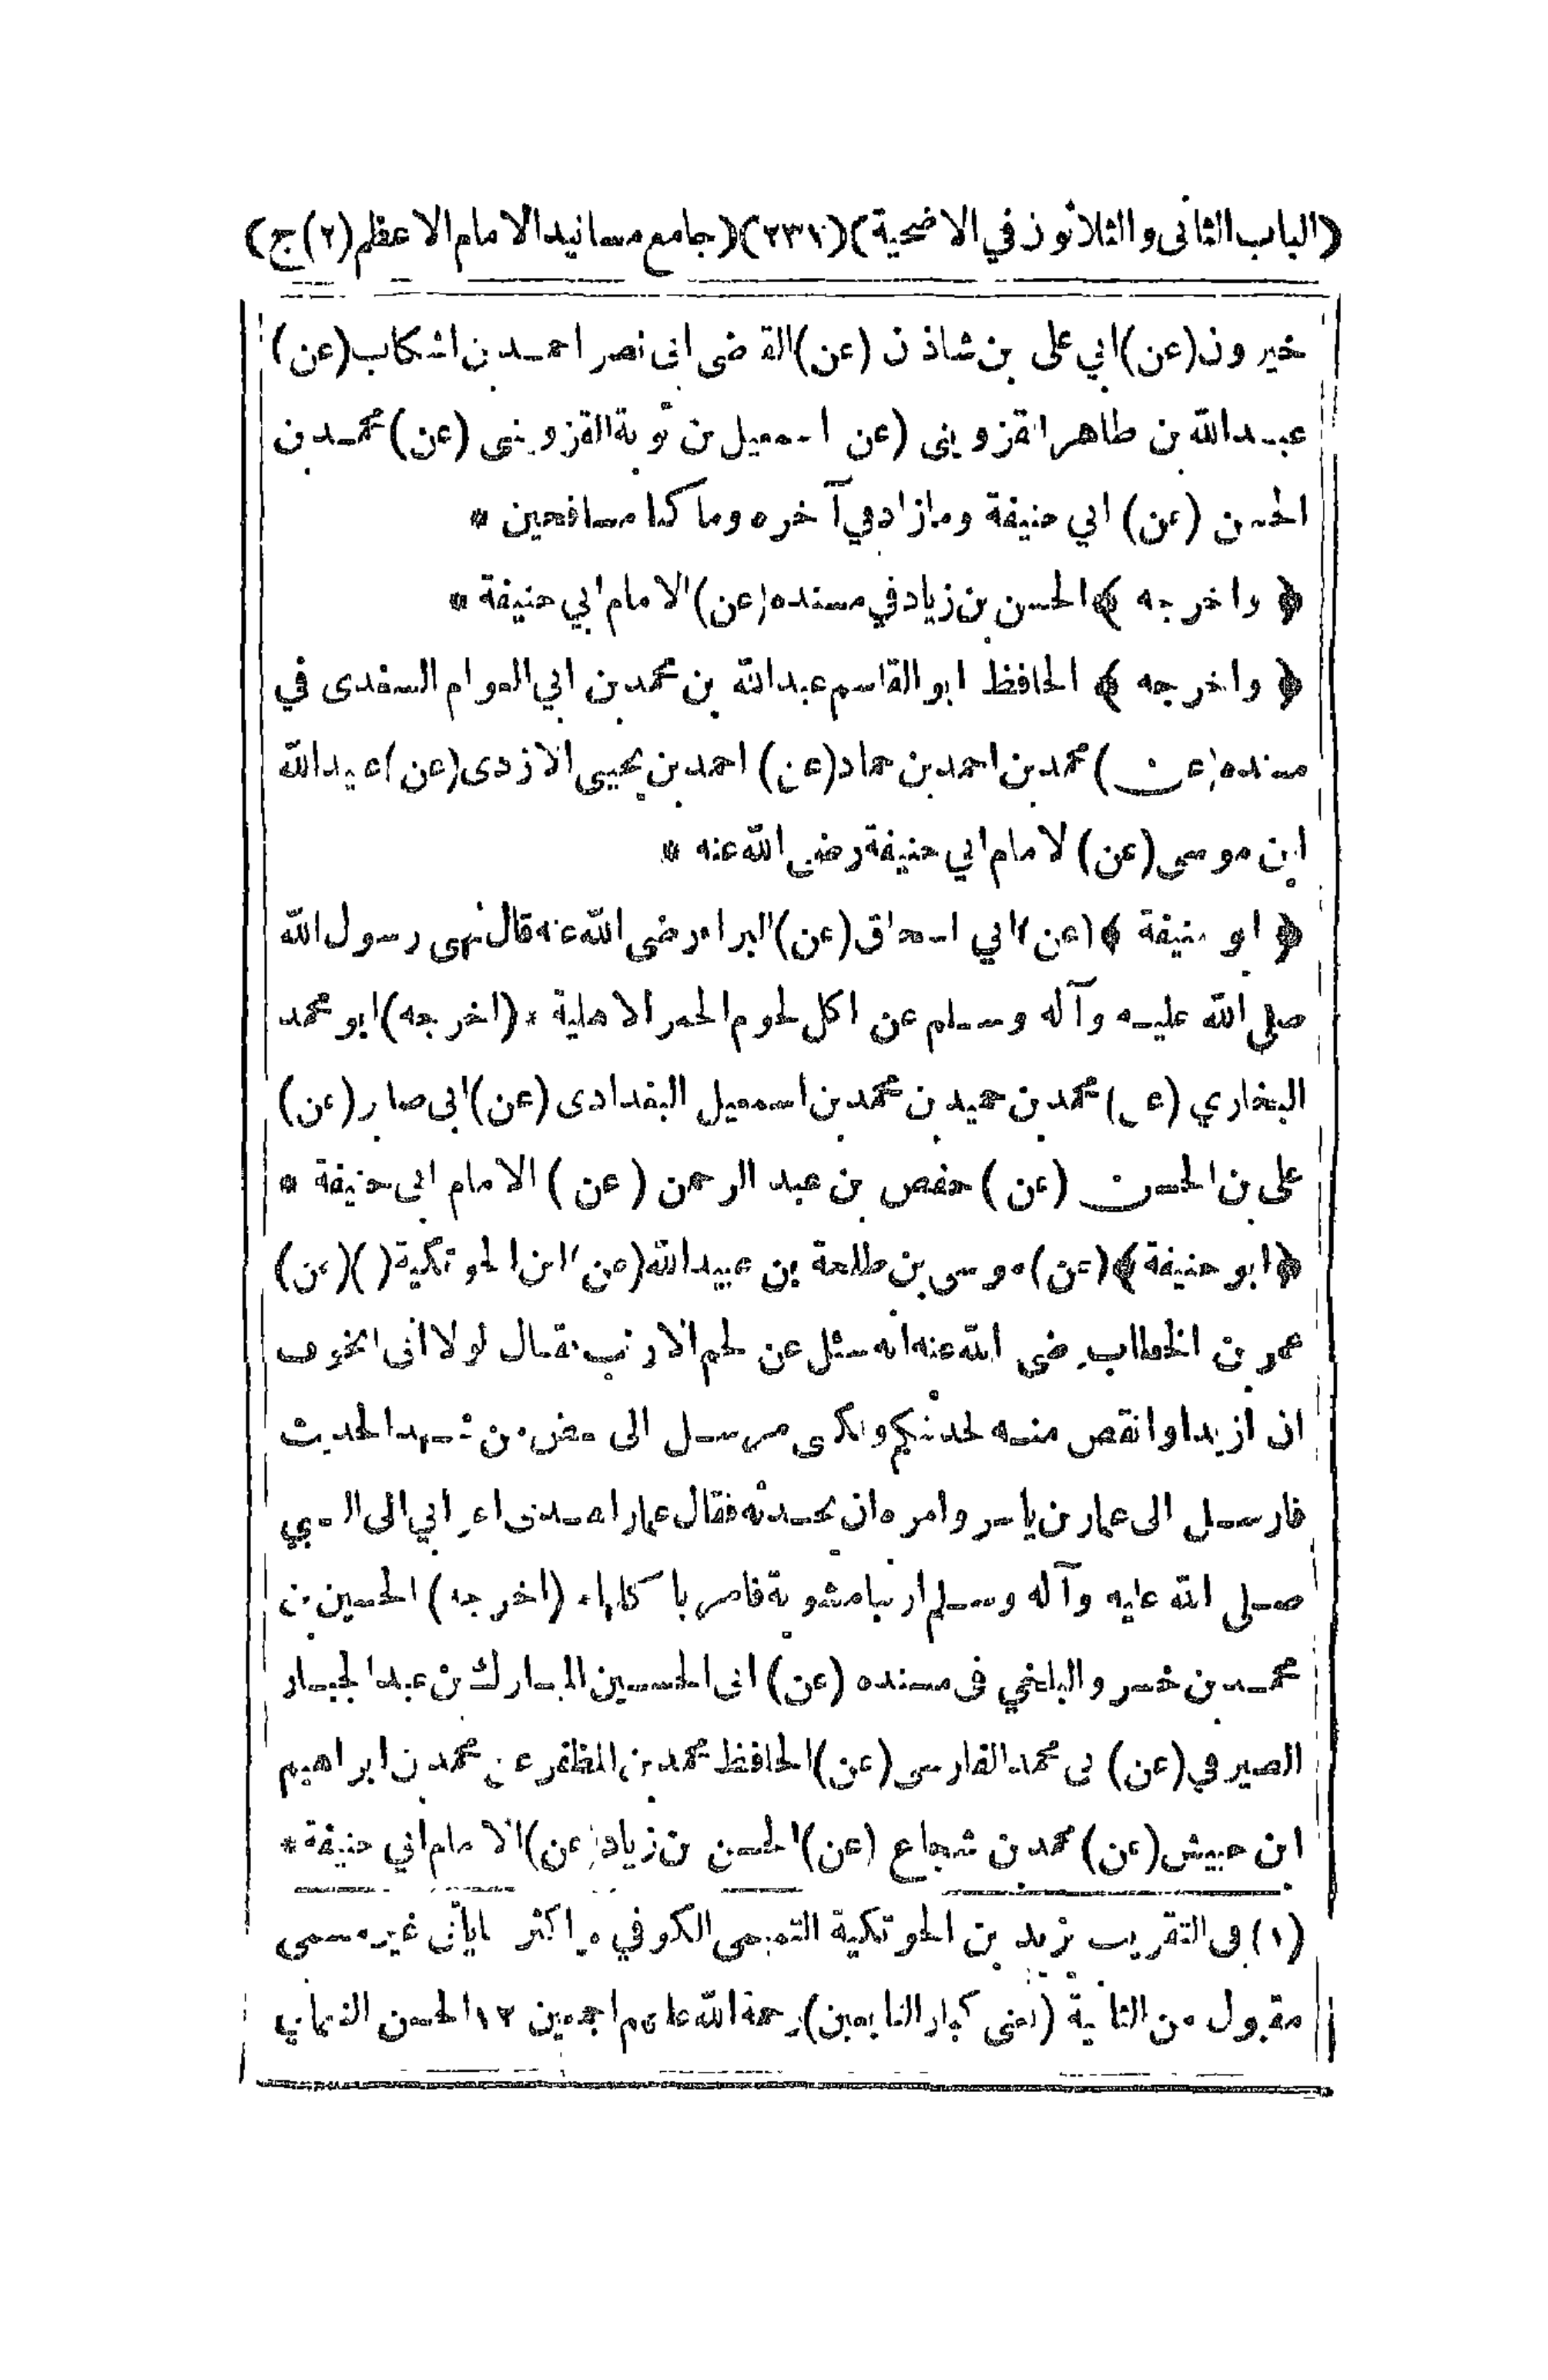 (الباب الثانى والثلاثون في الاضحية) (٢٣١) (جامع مسانيد الامام الاعظم (٢) ج)
خيرون (عن) ابي على بن شاذان (عن) القاضى ابى نصر احمد بن اشكاب (عن)
عبدالله بن طاهر القزوينى (عن) اسمعيل بن توبة القزوينى (عن) محمد بن
الحسن (عن) ابي حنيفة وزاد في آخره وما كنا مسافحين *
﴿ واخرجه ﴾ الحسن بن زياد في مسنده (عن) الامام ابي حنيفة *
﴿ واخرجه ﴾ الحافظ ابو القاسم عبدالله بن محمد بن ابي العوام السغدى في
مسنده (عن) محمد بن احمد بن حماد (عن) احمد بن يحيى الازدى (عن) عبيدالله
ابن موسى (عن) الامام ابي حنيفة رضى الله عنه *
﴿ ابو حنيفة ﴾ (عن) ابي اسحاق (عن) البراء رضى الله عنه قال نهى رسول الله
صلى الله عليه وآله وسلم عن اكل لحوم الحمر الاهلية * (اخرجه) ابو محمد
البخاري (عن) محمد بن حميد بن محمد بن اسمعيل البغدادى (عن) ابى صابر (عن)
على بن الحسن (عن) حفص بن عبد الرحمن (عن) الامام ابى حنيفة *
﴿ ابو حنيفة ﴾ (عن) موسى بن طلحة بن عبيدالله (عن) ابن الحوتكية () (عن)
عمر بن الخطاب رضى الله عنه انه سئل عن لحم الارنب فقال لولا انى اتخوف
ان ازيد او انقص منه لحدثتكم ولكنى مرسل الى بعض من شهد الحديث
فارسل الى عمار بن ياسر وامره ان يحدثه فقال عمار اهدى اعرابي الى النبي
صلى الله عليه وآله وسلم ارنبا مشوية فامر باكلها * (اخرجه) الحسين بن
محمد بن خسرو البلخي فى مسنده (عن) ابى الحسين المبارك بن عبد الجبار
الصيرفي (عن) ابى محمد الفارسى (عن) الحافظ محمد بن المظفر عن محمد بن ابراهيم
ابن حبيش (عن) محمد بن شجاع (عن) الحسن بن زياد (عن) الامام ابي حنيفة *
(١) فى التقريب يزيد بن الحوتكية التميمى الكوفي واكثر ما يأتى غير مسمى
مقبول من الثانية (يعنى كبار التابعين) رحمة الله عليهم اجمعين ١٢ الحسن النعماني